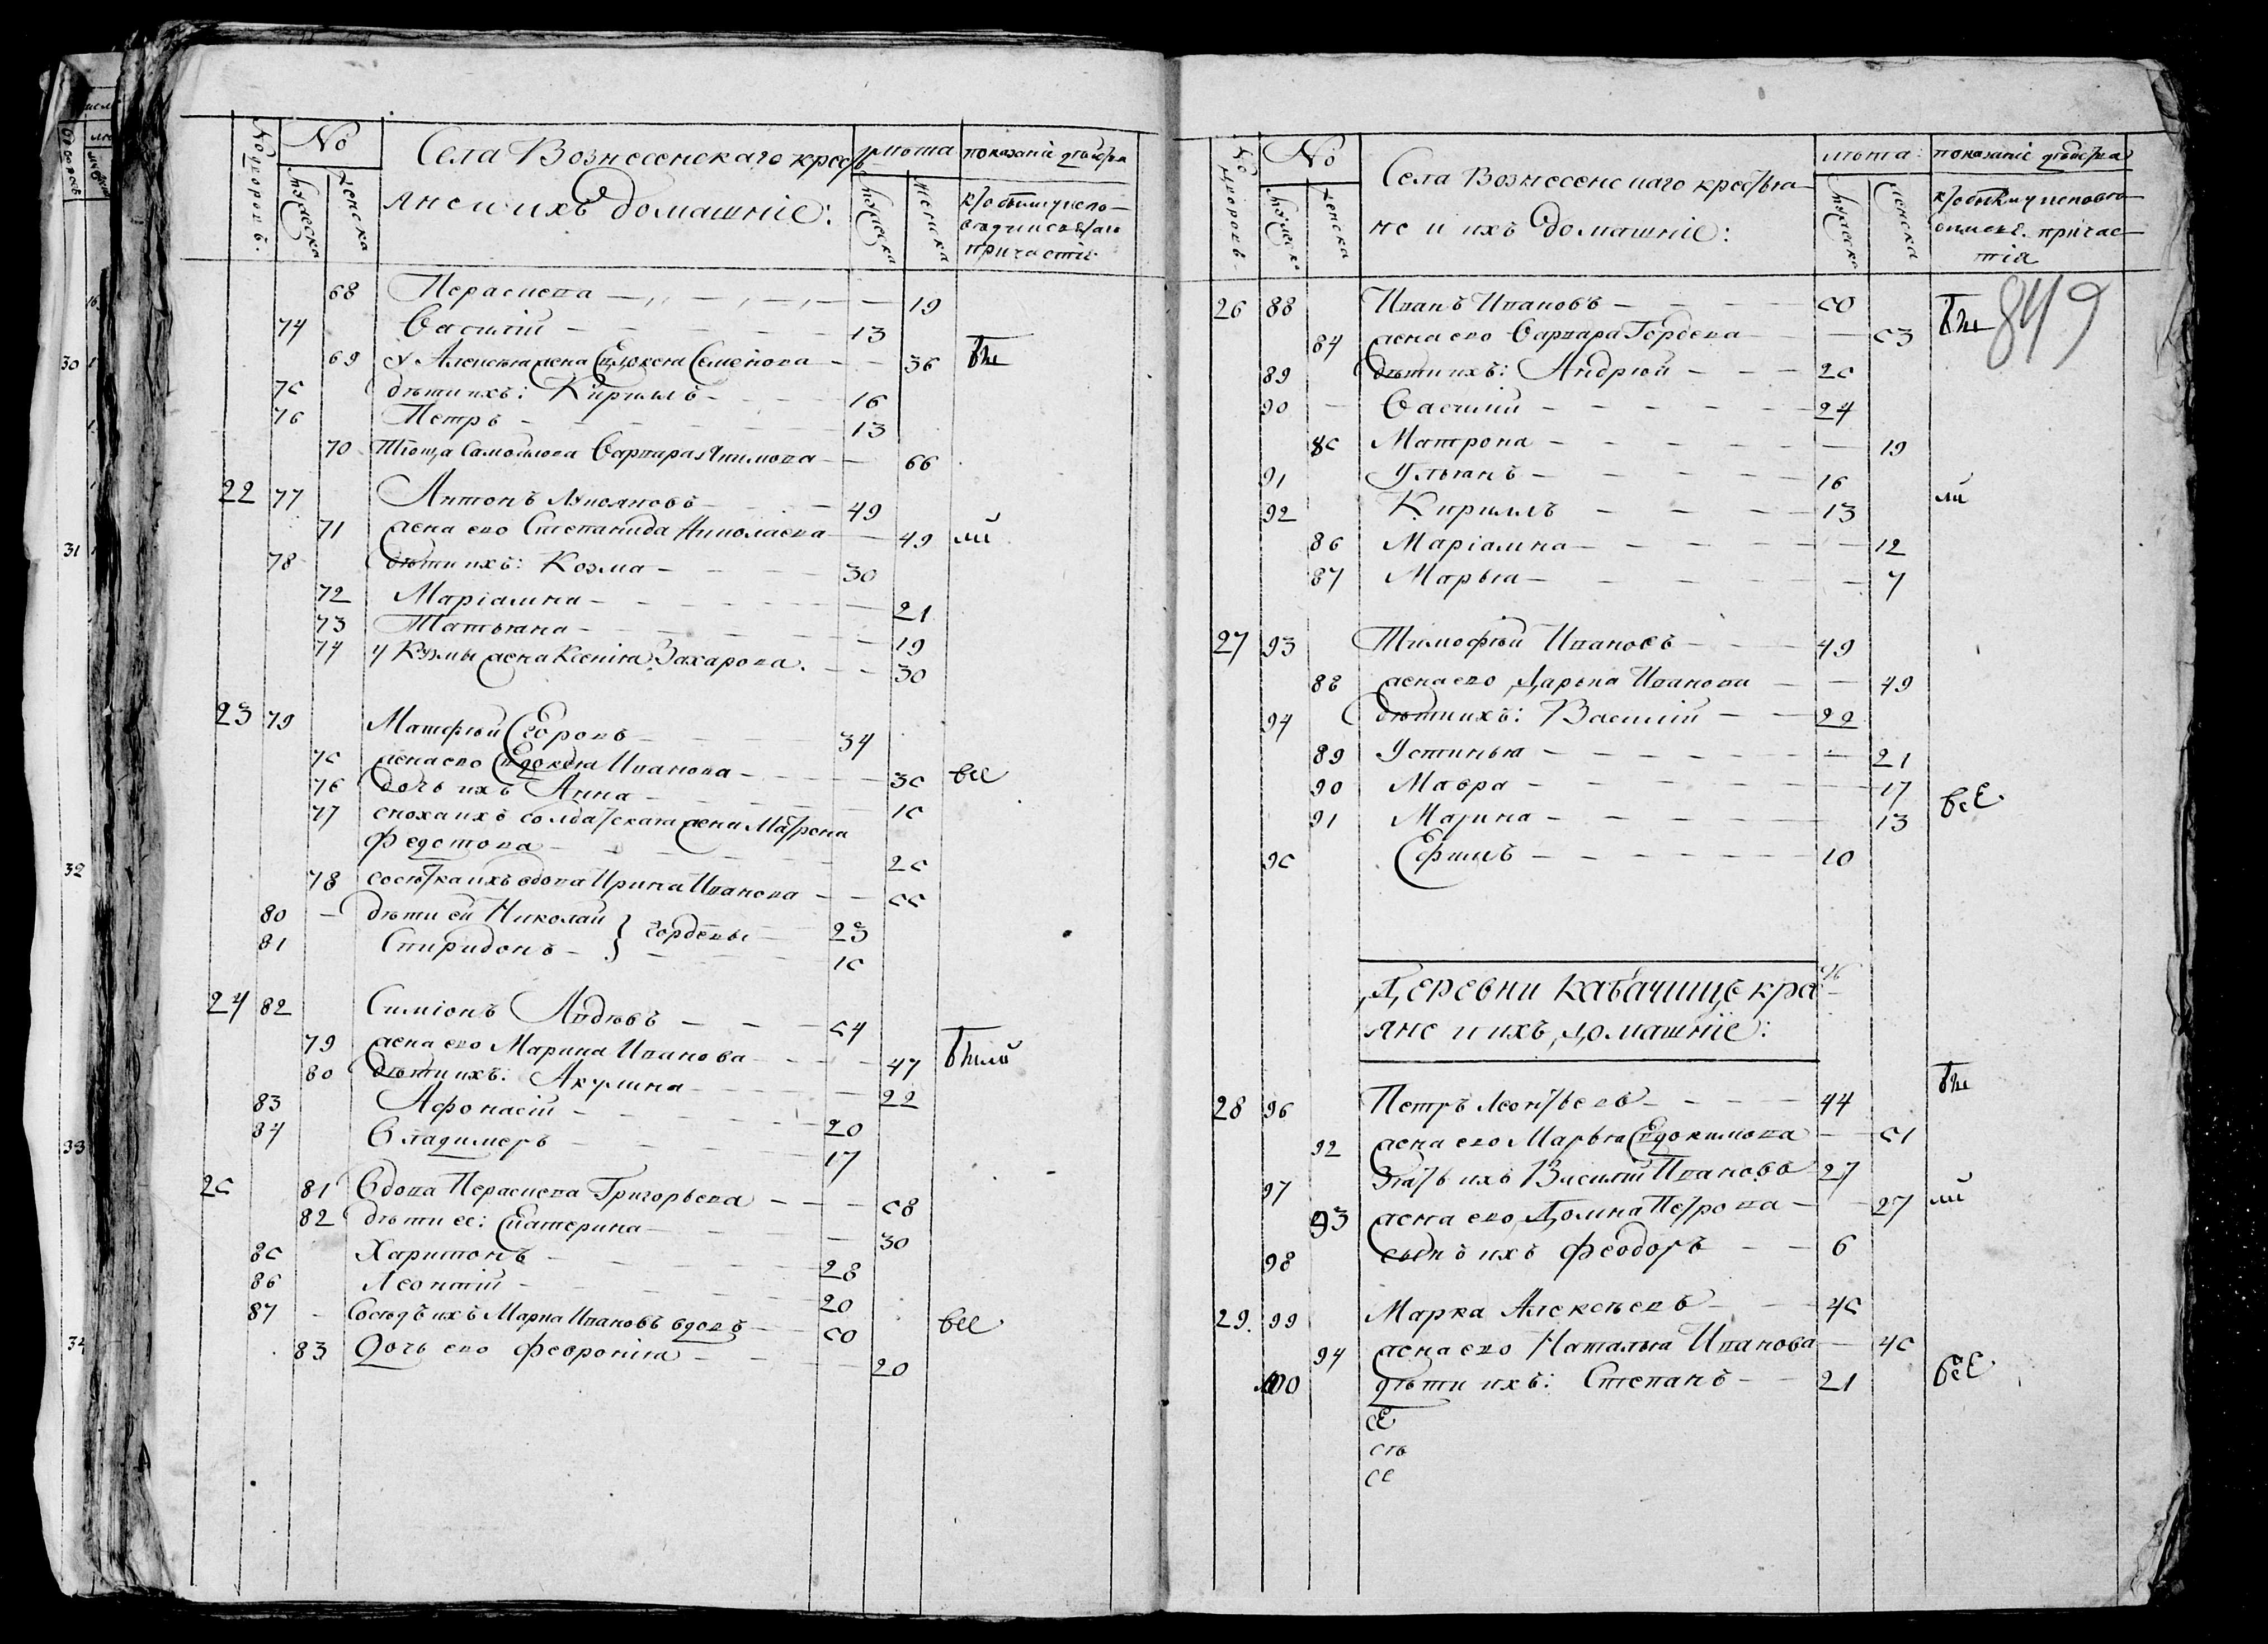 № дворовъ.
№
мужеска
женска
Села Вознесенскаго кресть
яне и ихъ домашніе:
лѣта
мужеска
женска
показаніе дѣйства
причастія
68 Параскева 19
74 Василій 13
69 У Алексѣя жена Евдокея Семенова 36 бы
75 дѣти ихъ: Кирилъ 16
76 Петръ 13
70 Тіоща Самойлова Варвара Якимова 66
22 77 Антонъ 49
71 жена ево Степанида Николаева 49 ли
78 дѣти ихъ: Козма 30
72 Маріамна 21
73 Татьяна 19
74 У Кузмы жена Ксенія Захарова 30
23 79 Матфѣй Егоровъ 34
75 жена ево Евдокея Иванова 35 все
76 дочь ихъ Анна 15
77 сноха ихъ солдатская жена Матрона
Федотова 25
78 сосѣтка ихъ вдова Ирина Иванова 55
80 дѣти ей Николай } Гордѣевы 23
81 Спиридонъ 15
24 82 Симіонъ Авдѣевъ 54
79 жена ево Марина Иванова 47 были
80 дѣти ихъ: Акулина 22
83 Афонасій 20
84 Владимеръ 17
25 81 Вдова Параскева Григорьева 58
82 дѣти ее: Екатерина 30
85 Харитонъ 28
86 Леонтій 20
87 Сосѣдъ ихъ Марка Ивановъ вдовъ 50 все
83 Дочь ево Феоронія 20
№ дворовъ
№
мужеска
женска
Села Вознесенскаго крестья
не и ихъ домашніе:
лѣта
мужеска
женска
показаніе дѣйства
причас
тія
849
26 88 Иванъ Ивановъ 50 бы
84 жена ево Варвара Гордеева 53
89 дѣти ихъ: Андрѣй 25
90 Василій 24
85 Матрона 19
91 Ульянъ 16 ли
92 Кириллъ 13
86 Маріамна 12
87 Марья 7
27 93 Тимофѣй Ивановъ 49
88 жена ево Дарья Иванова 49
94 дѣти ихъ: Василій 22
89 Устинья 21
90 Мавра 17
91 Марина 13 все
95 Ефимъ 10
Деревни Кабачищъ кре
яне и ихъ домашніе:
28 96 Петръ Леонтьевъ 44 бы
92 жена ево Марья Евдокимова 51
97 Зять ихъ Василій Ивановъ 27
93 жена ево Домна Петрова 27 ли
98 сынъ ихъ Феодоръ 6
29 99 Марка Алексѣевъ 45
94 жена ево Наталья Иванова 45
100 дѣти ихъ: Степанъ 21 все